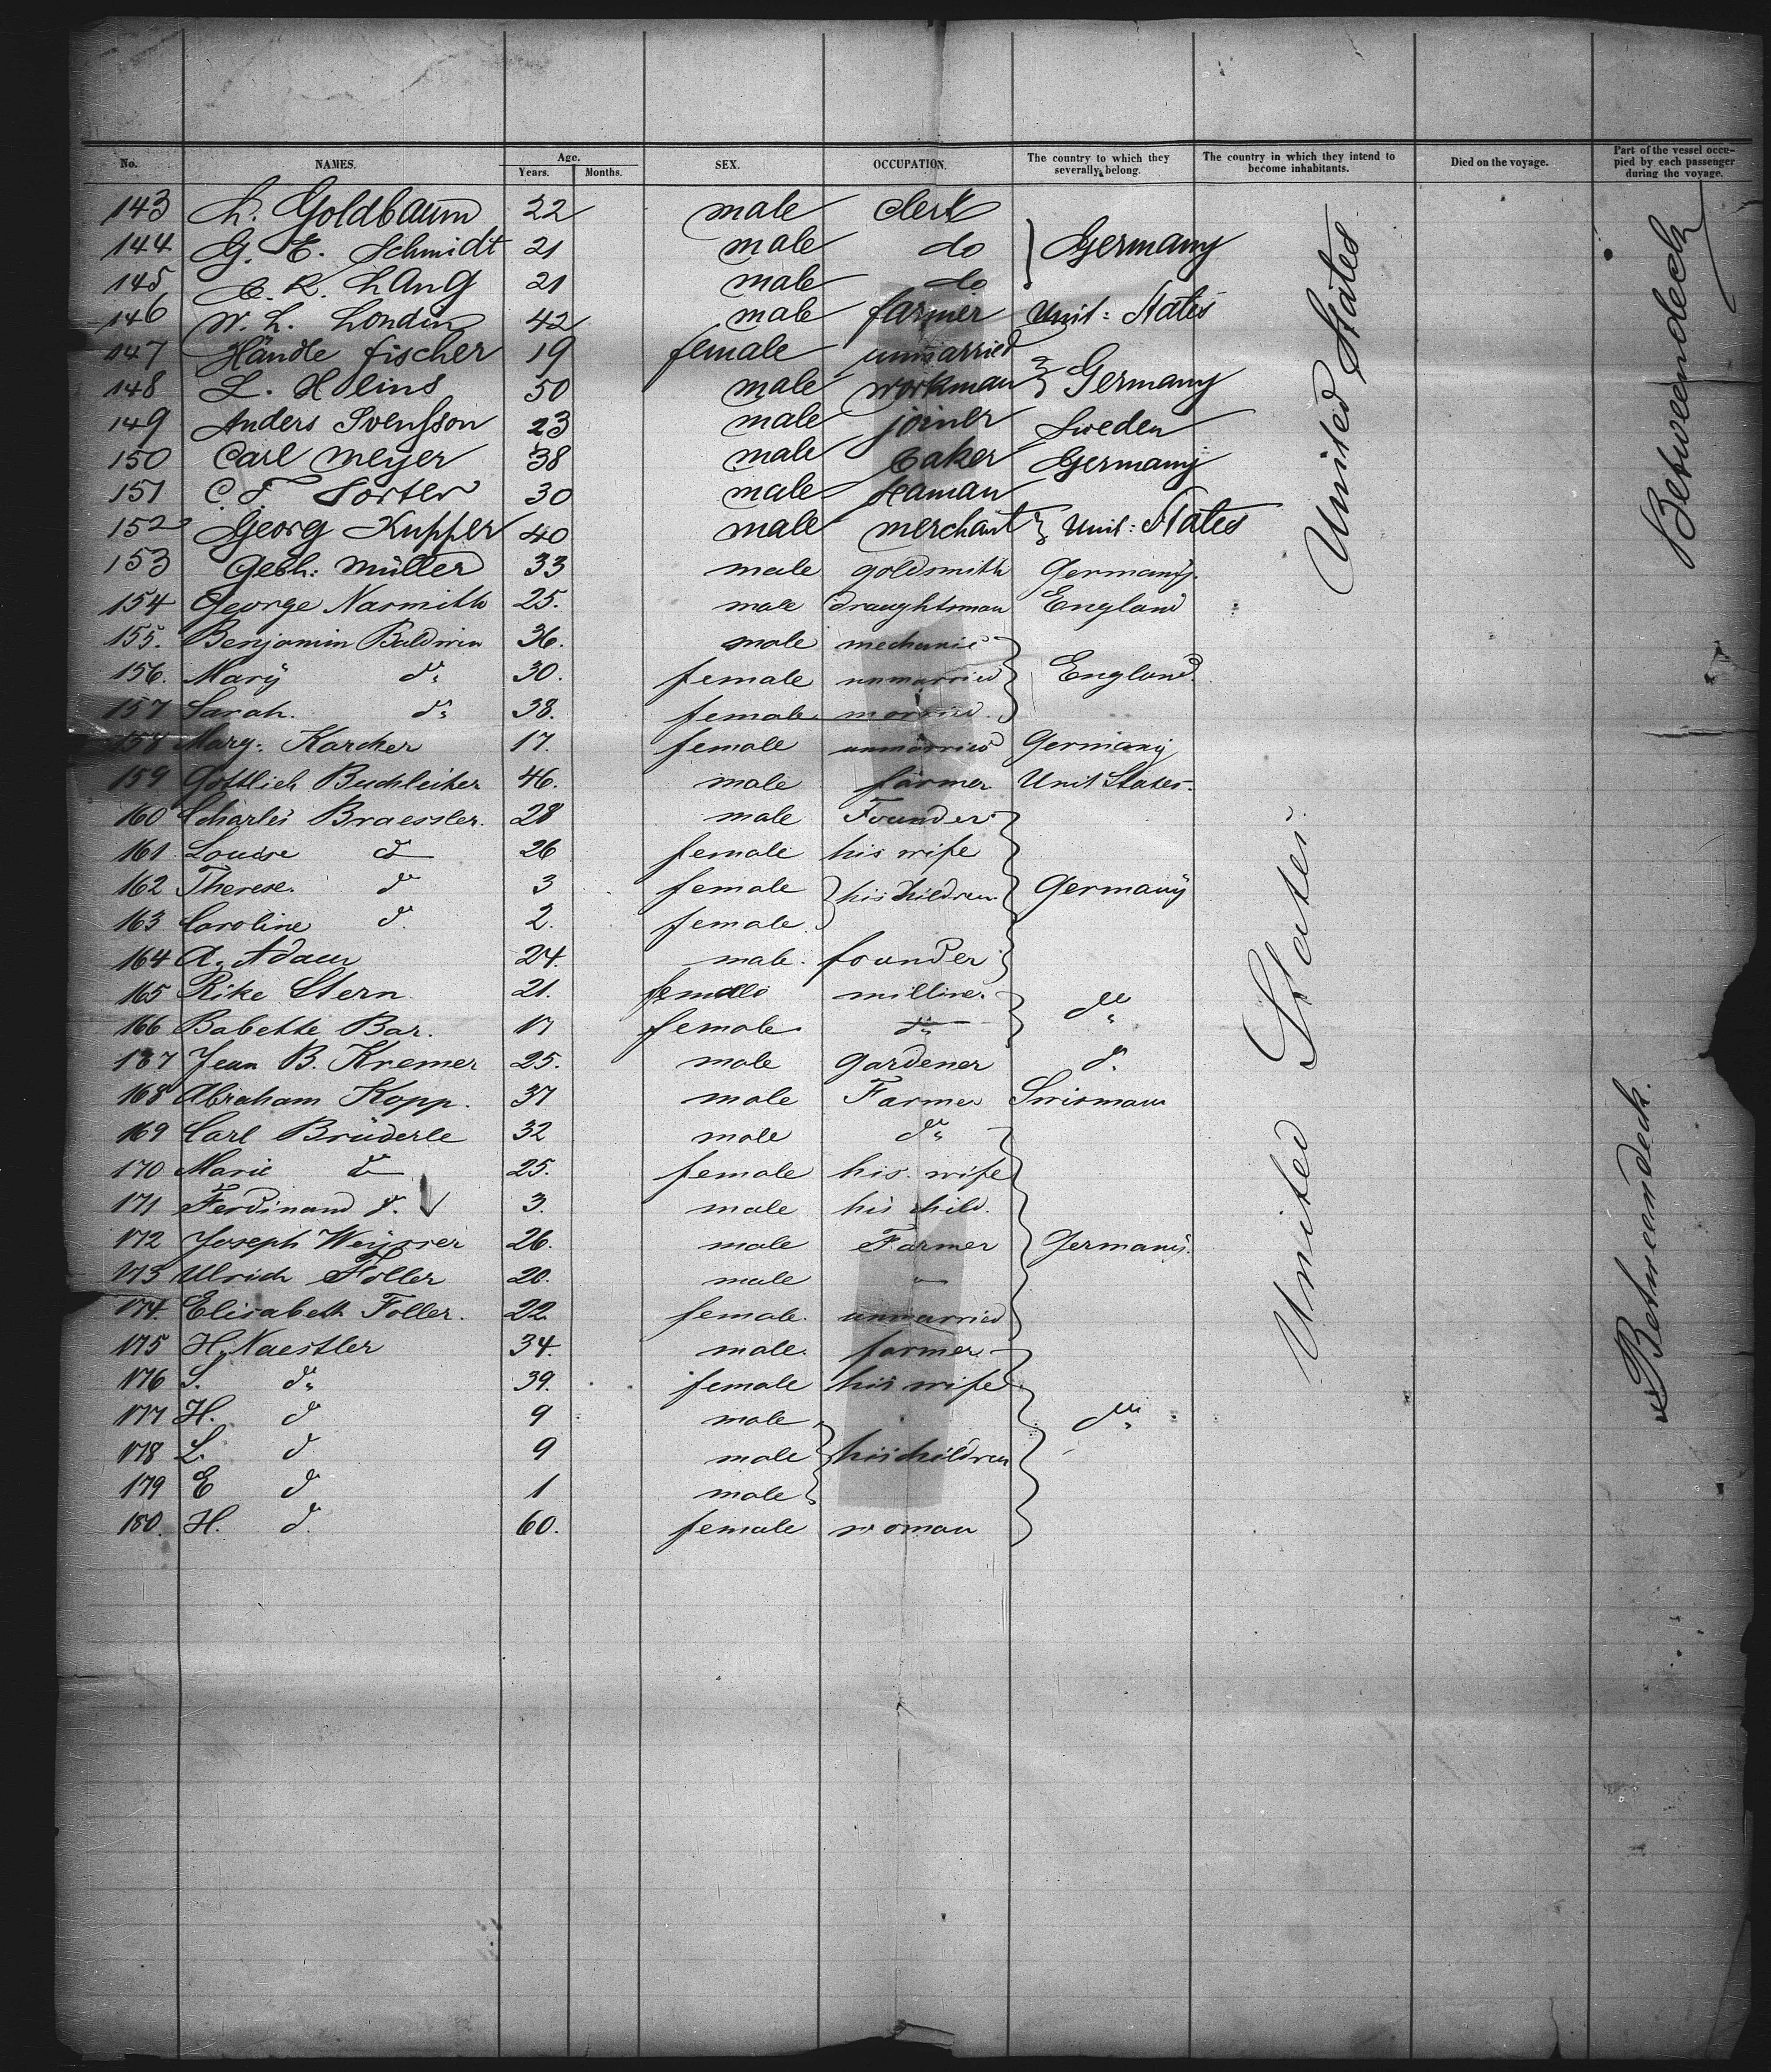 No. NAMES. Age. Years. Months. SEX. OCCUPATION. The country to which they severally belong. The country in which they intend to become inhabitants. Died on the voyage. Part of the vessel occupied by each passenger during the voyage.
143 L. Goldbaum 22 male clerk
144 G. E. Schmidt 21 male do } Germany
145 C. R. Lang 21 male do
146 W. L. London 42 male farmer Unit: States
147 Händle Fischer 19 female unmarried
148 L. Heins 50 male workman } Germany
149 Anders Svensson 23 male joiner Sweden
150 Carl Meyer 38 male baker Germany
151 C. F. Sorter 30 male seaman
152 Georg Kupper 40 male merchant } Unit: States
153 Gebh: Müller 33 male goldsmith Germany.
154 George Nasmith 25. male draughtsman England
155. Benjamin Baldwin 36. male mechanic
156. Mary do 30. female unmarried } England.
157 Sarah. do 38. female married.
158 Marg: Karcher 17. female unmarried Germany
159 Gottlieb Buchleiter 46. male farmer Unit States.
160 Charles Braessler. 28 male Founder
161 Louise do 26 female his wife
162 Therese. do 3 female } his children Germany
163 Caroline do 2. female
164 A. Adam 24. male. founder
165 Rike Stern 21. female milliner
166 Babette Bar. 17 female do } do
167 Jean B. Kremer 25. male gardener do
168 Abraham Kopp. 37 male Farmer
169 Carl Brüderle 32 male do
170 Marie do 25. female his wife
171 Ferdinand do 3. male his child.
172 Joseph Weysser 26. male Farmer Germany.
173 Ulrich Foller 20. male "
174. Elisabeth Foller. 22. female. unmarried
175 H. Naestler 34. male. farmer
176 S. do 39. female his wife
177 H. do 9 male do
178 L. do 9 male } his children
179 E do 1 male
180. H. do 60. female woman
United States
United States.
Betweendeck
Betweendeck.